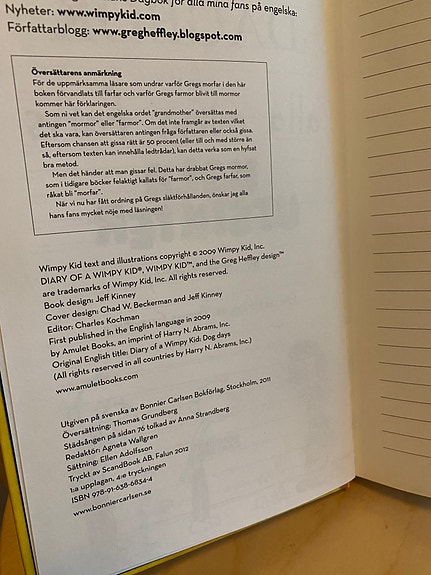 Dagbok för alla mina fans på engelska:
Nyheter: www.wimpykid.com
Författarblogg: www.gregheffley.blogspot.com
Översättarens anmärkning
För de uppmärksamma läsare som undrar varför Gregs morfar i den här
boken förvandlats till farfar och varför Gregs farmor blivit till mormor
kommer här förklaringen.
Som ni vet kan det engelska ordet "grandmother" översättas med
antingen "mormor" eller "farmor". Om det inte framgår av texten vilket
det ska vara, kan översättaren antingen fråga författaren eller också gissa.
Eftersom chansen att gissa rätt är 50 procent (eller till och med större än
så, eftersom texten kan innehålla ledtrådar), kan detta verka som en hyfsat
bra metod.
Men det händer att man gissar fel. Detta har drabbat Gregs mormor,
som i tidigare böcker felaktigt kallats för "farmor", och Gregs farfar, som
råkat bli "morfar".
När vi nu har fått ordning på Gregs släktförhållanden, önskar jag alla
hans fans mycket nöje med läsningen!
Wimpy Kid text and illustrations copyright © 2009 Wimpy Kid, Inc.
DIARY OF A WIMPY KID®, WIMPY KID™, and the Greg Heffley design™
are trademarks of Wimpy Kid, Inc. All rights reserved.
Book design: Jeff Kinney
Cover design: Chad W. Beckerman and Jeff Kinney
Editor: Charles Kochman
First published in the English language in 2009
by Amulet Books, an imprint of Harry N. Abrams, Inc.
Original English title: Diary of a Wimpy Kid: Dog days
(All rights reserved in all countries by Harry N. Abrams, Inc.)
www.amuletbooks.com
Utgiven på svenska av Bonnier Carlsen Bokförlag, Stockholm, 2011
Översättning: Thomas Grundberg
Städsången på sidan 76 tolkad av Anna Strandberg
Redaktör: Agneta Wallgren
Sättning: Ellen Adolfsson
Tryckt av ScandBook AB, Falun 2012
1:a upplagan, 4:e tryckningen
ISBN 978-91-638-6834-4
www.bonniercarlsen.se